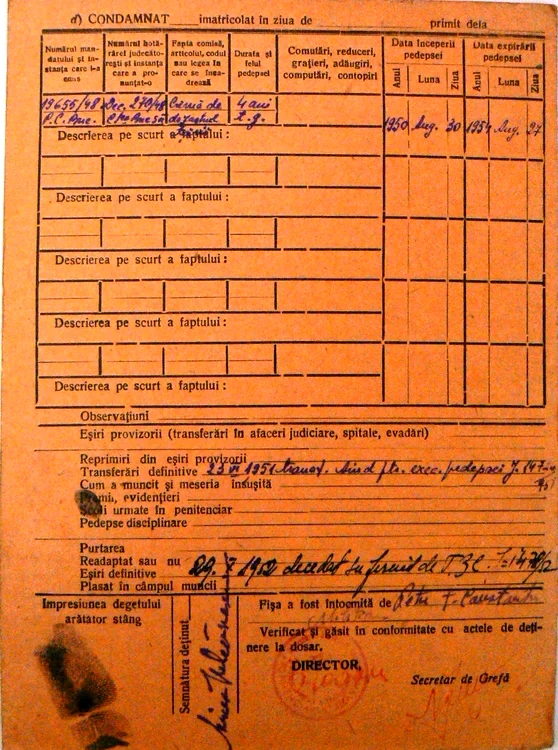 d) CONDAMNAT imatricolat în ziua de primit dela
Numărul mandatului și instanța care l-a emis
Numărul hotărârei judecătorești și instanța care a pronunțat-o
Fapta comisă, articolul, codul sau legea în care se încadrează
Durata și felul pedepsei
Comutări, reduceri, grațieri, adăugiri, computări, contopiri
Data începerii pedepsei
Data expirării pedepsei
Anul Luna Ziua Anul Luna Ziua
19655/48 Dec. 270/48 Crimă de 4 ani
1950 Aug. 30 1954 Aug. 27
Descrierea pe scurt a faptului:
Descrierea pe scurt a faptului:
Descrierea pe scurt a faptului:
Descrierea pe scurt a faptului:
Descrierea pe scurt a faptului:
Observațiuni
Eșiri provizorii (transferări în afaceri judiciare, spitale, evadări)
Reprimiri din eșiri provizorii
Transferări definitive 25 VI 1951 transf. Aiud ptr. exec. pedepsei
Cum a muncit și meseria însușită
Premii, evidențieri
Școli urmate în penitenciar
Pedepse disciplinare
Purtarea
Readaptat sau nu
Eșiri definitive 29 X 1952 decedat de T.B.C.
Plasat în câmpul muncii
Impresiunea degetului arătător stâng
Semnătura deținut
Fișa a fost întocmită de
Verificat și găsit în conformitate cu actele de deți-
nere la dosar.
DIRECTOR,
Secretar de Grefă